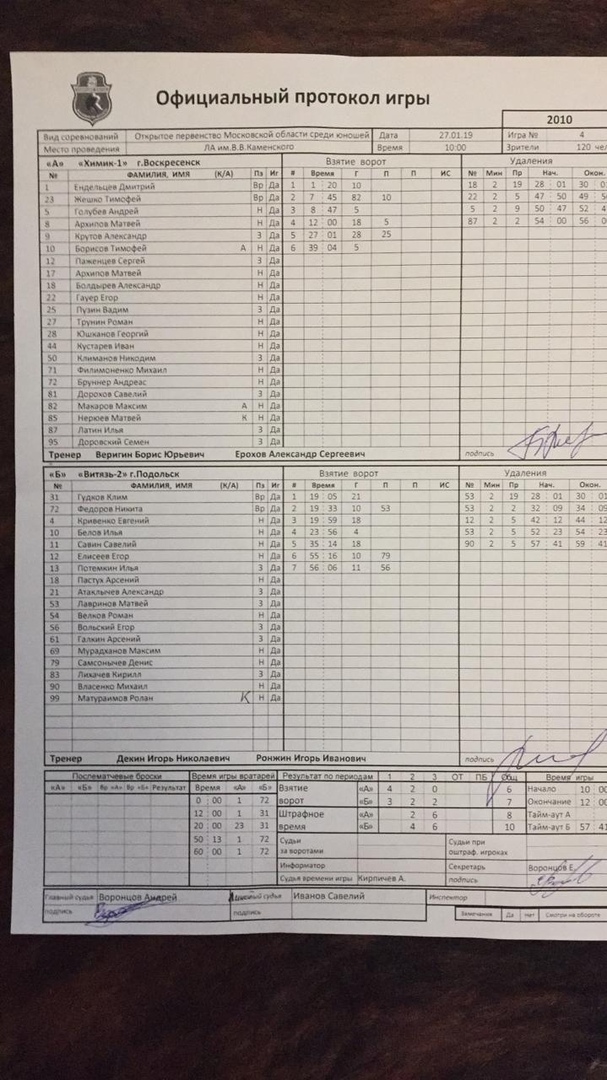 Официальный протокол игры
2010
Вид соревнований Открытое первенство Московской области среди юношей Дата 27.01.19 Игра № 4
Место проведения ЛА им.В.В.Каменского Время 10:00 Зрители 120 чел
«А» «Химик-1» г.Воскресенск Взятие ворот Удаления
№ ФАМИЛИЯ, ИМЯ (К/А) Пз Иг # Время Г П П ИС № Мин Пр Нач. Окон.
1 Ендельцев Дмитрий Вр Да 1 1 20 10 18 2 19 28 01 30 0
23 Жешко Тимофей Вр Да 2 7 45 82 10 22 2 5 47 50 49 5
5 Голубев Андрей Н Да 3 8 47 5 5 2 9 50 47 52 4
8 Архипов Матвей Н Да 4 12 00 18 5 87 2 2 54 00 56 0
9 Крутов Александр З Да 5 27 01 28 25
10 Борисов Тимофей А Н Да 6 39 04 5
12 Паженцев Сергей З Да
17 Архипов Матвей Н Да
18 Болдырев Александр Н Да
22 Гауер Егор Н Да
25 Пузин Вадим З Да
27 Трунин Роман Н Да
28 Юшканов Георгий Н Да
44 Кустарев Иван Н Да
50 Климанов Никодим З Да
71 Филимоненко Михаил Н Да
72 Бруннер Андреас Н Да
81 Дорохов Савелий З Да
82 Макаров Максим А Н Да
85 Нерюев Матвей К Н Да
87 Латин Илья З Да
95 Доровский Семен З Да
Тренер Веригин Борис Юрьевич Ерохов Александр Сергеевич подпись
«Б» «Витязь-2» г.Подольск Взятие ворот Удаления
№ ФАМИЛИЯ, ИМЯ (К/А) Пз Иг # Время Г П П ИС № Мин Пр Нач. Окон.
31 Гудков Клим Вр Да 1 19 05 21 53 2 19 28 01 30 01
72 Федоров Никита Вр Да 2 19 33 10 53 53 2 2 32 09 34 09
4 Кривенко Евгений Н Да 3 19 59 18 12 2 5 42 12 44 12
10 Белов Илья Н Да 4 23 56 4 53 2 5 52 23 54 23
11 Савин Савелий Н Да 5 35 14 18 90 2 5 57 41 59 41
12 Елисеев Егор Н Да 6 55 16 10 79
13 Потемкин Илья З Да 7 56 06 11 56
18 Пастух Арсений Н Да
21 Атаклычев Александр З Да
53 Лавринов Матвей З Да
54 Велков Роман Н Да
56 Вольский Егор З Да
61 Галкин Арсений З Да
69 Мурадханов Максим Н Да
79 Самсонычев Денис Н Да
83 Лихачев Кирилл З Да
90 Власенко Михаил Н Да
99 Матураимов Ролан К Н Да
Тренер Декин Игорь Николаевич Ронжин Игорь Иванович подпись
Послематчевые броски Время игры вратарей Результат по периодам 1 2 3 ОТ ПБ Общ Время игры
«А» «Б» Вр «А» Вр «Б» Результат Время «А» «Б» Взятие «А» 4 2 0 6 Начало 10 00
0 00 1 72 ворот «Б» 3 2 2 7 Окончание 12 00
12 00 1 31 Штрафное «А» 2 6 8 Тайм-аут А
20 00 23 31 время «Б» 4 6 10 Тайм-аут Б 57 41
50 13 1 72 Судьи за воротами Судьи при оштраф. игроках
60 00 1 72 Информатор Секретарь Воронцов Е.
Судья времени игры Кирпичев А. подпись
Главный судья Воронцов Андрей судья Иванов Савелий Инспектор
подпись подпись Замечания Да Нет Смотри на обороте